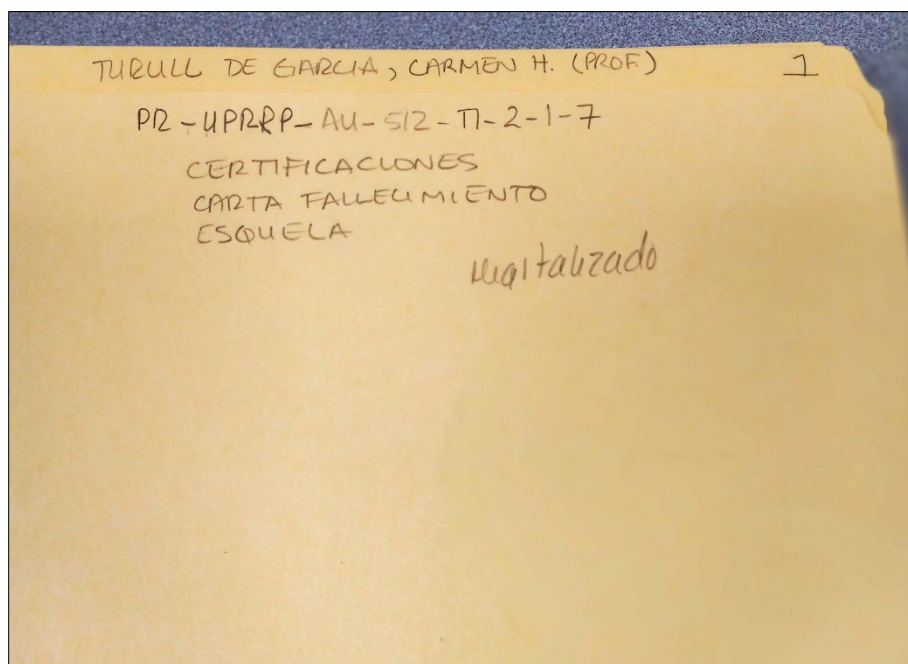 TURULL DE GARCIA, CARMEN H. (PROF.) 1
PR-UPRRP-AU-512-TI-2-1-7
CERTIFICACIONES
CARTA FALLECIMIENTO
ESQUELA
digitalizado